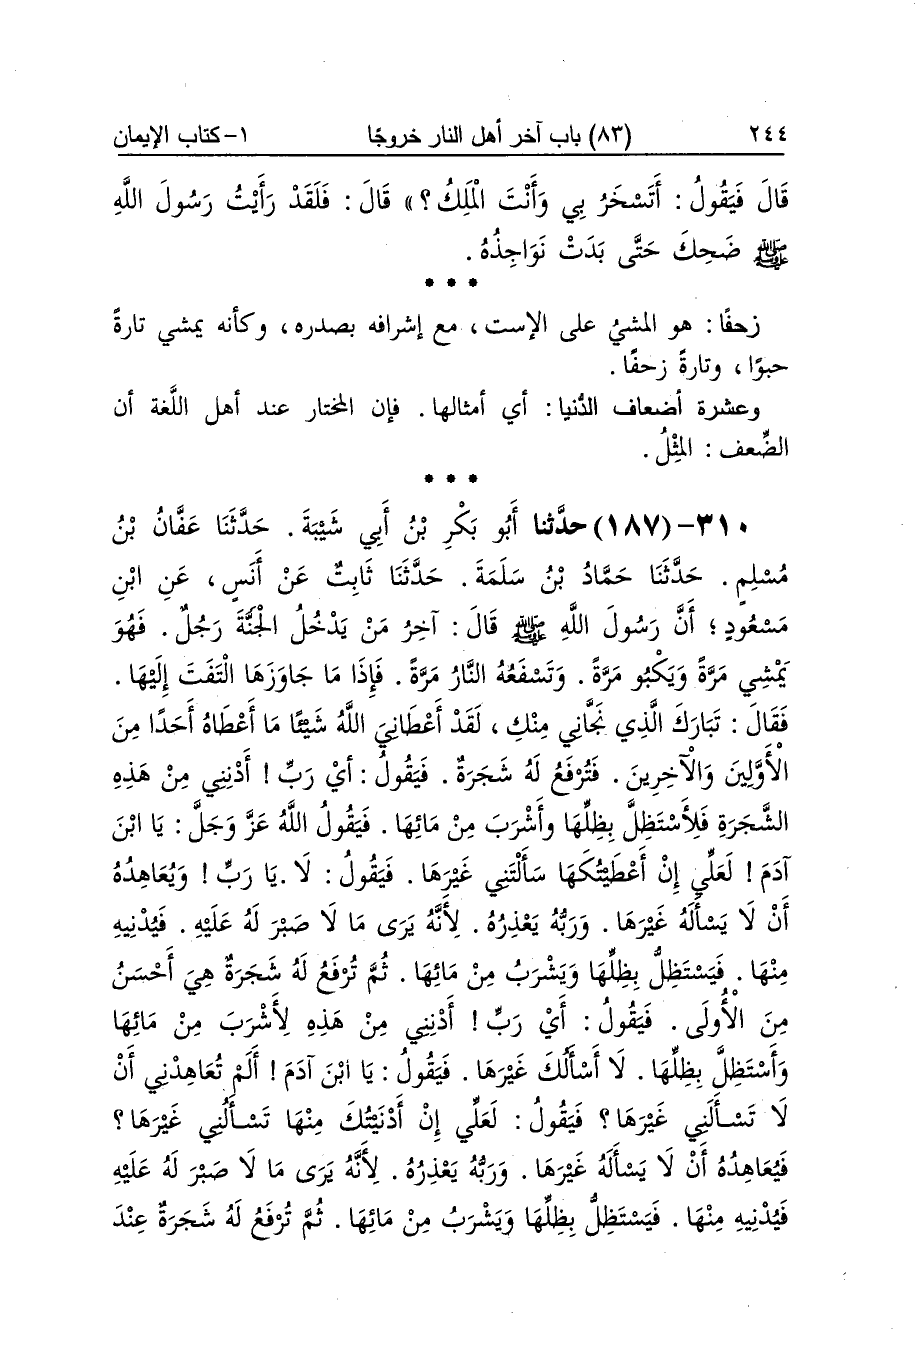 ٢٤٤ (٨٣) باب آخر أهل النار خروجًا ١- كتاب الإيمان
قَالَ فَيَقُولُ : أَتَسْخَرُ بِي وَأَنْتَ الْمَلِكُ ؟ » قَالَ : فَلَقَدْ رَأَيْتُ رَسُولَ اللَّهِ
ﷺ ضَحِكَ حَتَّى بَدَتْ نَوَاجِذُهُ .
* * *
زحفًا : هو المشيُ على الإست ، مع إشرافه بصدره ، وكأنه يمشي تارةً
حبوًا ، وتارةً زحفًا .
وعشرة أضعاف الدُّنيا : أي أمثالها . فإن المختار عند أهل اللَّغة أن
الضِّعف : المِثْلُ .
* * *
٣١٠- (١٨٧) حدَّثنا أَبُو بَكْرِ بْنُ أَبِي شَيْبَةَ . حَدَّثَنَا عَفَّانُ بْنُ
مُسْلِمٍ . حَدَّثَنَا حَمَّادُ بْنُ سَلَمَةَ . حَدَّثَنَا ثَابِتٌ عَنْ أَنَسٍ ، عَنِ ابْنِ
مَسْعُودٍ ؛ أَنَّ رَسُولَ اللَّهِ ﷺ قَالَ : آخِرُ مَنْ يَدْخُلُ الْجَنَّةَ رَجُلٌ . فَهُوَ
يَمْشِي مَرَّةً وَيَكْبُو مَرَّةً . وَتَسْفَعُهُ النَّارُ مَرَّةً . فَإِذَا مَا جَاوَزَهَا الْتَفَتَ إِلَيْهَا .
فَقَالَ : تَبَارَكَ الَّذِي نَجَّانِي مِنْكِ ، لَقَدْ أَعْطَانِيَ اللَّهُ شَيْئًا مَا أَعْطَاهُ أَحَدًا مِنَ
الْأَوَّلِينَ وَالْآخِرِينَ . فَتُرْفَعُ لَهُ شَجَرَةٌ . فَيَقُولُ : أَيْ رَبِّ ! أَدْنِنِي مِنْ هَذِهِ
الشَّجَرَةِ فَلِأَسْتَظِلَّ بِظِلِّهَا وأَشْرَبَ مِنْ مَائِهَا . فَيَقُولُ اللَّهُ عَزَّ وَجَلَّ : يَا ابْنَ
آدَمَ ! لَعَلِّي إِنْ أَعْطَيْتُكَهَا سَأَلْتَنِي غَيْرَهَا . فَيَقُولُ : لَا . يَا رَبِّ ! وَيُعَاهِدُهُ
أَنْ لَا يَسْأَلَهُ غَيْرَهَا . وَرَبُّهُ يَعْذِرُهُ . لِأَنَّهُ يَرَى مَا لَا صَبْرَ لَهُ عَلَيْهِ . فَيُدْنِيهِ
مِنْهَا . فَيَسْتَظِلُّ بِظِلِّهَا وَيَشْرَبُ مِنْ مَائِهَا . ثُمَّ تُرْفَعُ لَهُ شَجَرَةٌ هِيَ أَحْسَنُ
مِنَ الْأُولَى . فَيَقُولُ : أَيْ رَبِّ ! أَدْنِنِي مِنْ هَذِهِ لِأَشْرَبَ مِنْ مَائِهَا
وَأَسْتَظِلَّ بِظِلِّهَا . لَا أَسْأَلُكَ غَيْرَهَا . فَيَقُولُ : يَا ابْنَ آدَمَ ! أَلَمْ تُعَاهِدْنِي أَنْ
لَا تَسْأَلَنِي غَيْرَهَا ؟ فَيَقُولُ : لَعَلِّي إِنْ أَدْنَيْتُكَ مِنْهَا تَسْأَلُنِي غَيْرَهَا ؟
فَيُعَاهِدُهُ أَنْ لَا يَسْأَلَهُ غَيْرَهَا . وَرَبُّهُ يَعْذِرُهُ . لِأَنَّهُ يَرَى مَا لَا صَبْرَ لَهُ عَلَيْهِ
فَيُدْنِيهِ مِنْهَا . فَيَسْتَظِلُّ بِظِلِّهَا وَيَشْرَبُ مِنْ مَائِهَا . ثُمَّ تُرْفَعُ لَهُ شَجَرَةٌ عِنْدَ